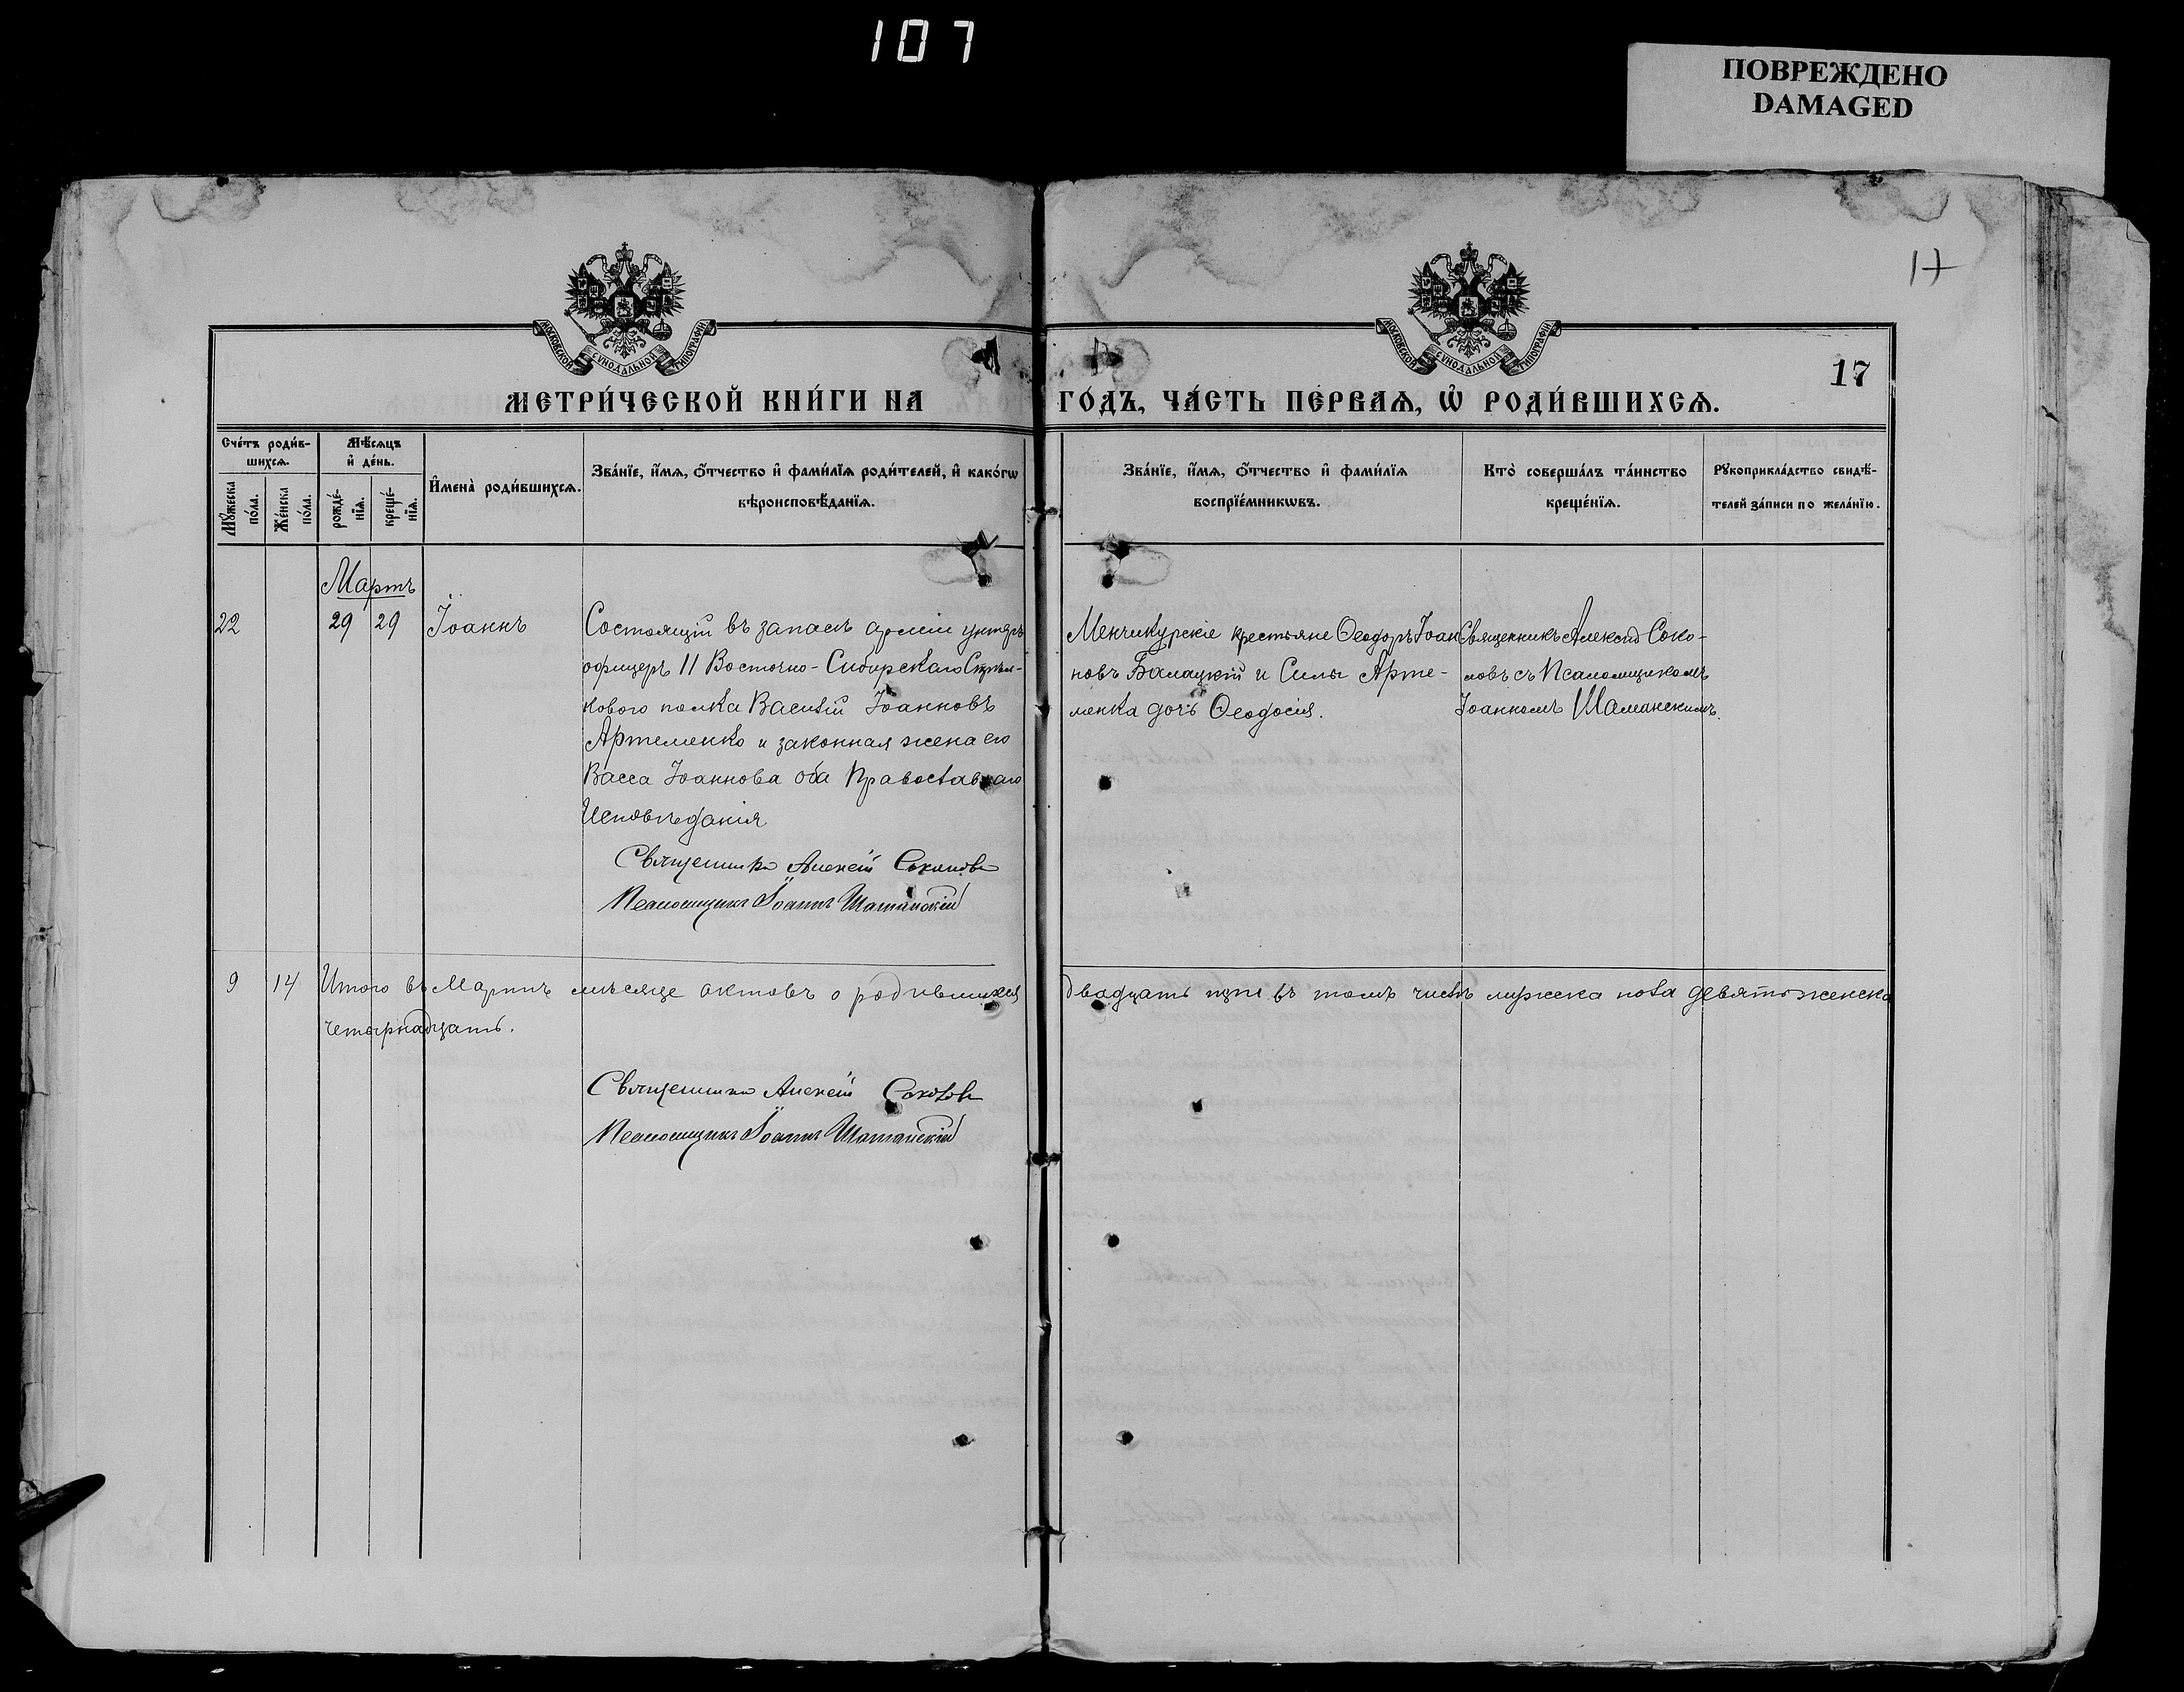 107
ПОВРЕЖДЕНО
DAMAGED
17
МОСКОВСКОЙ СѴНОДАЛЬНОЙ ТИПОГРАФІИ
МОСКОВСКОЙ СѴНОДАЛЬНОЙ ТИПОГРАФІИ
17
МЕТРИ́ЧЕСКОЙ КНИ́ГИ НА ГО́ДЪ, ЧА́СТЬ ПЕ́РВАѦ, Ѡ҆ РОДИ́ВШИХСѦ.
Сче́тъ роди́в-
шихсѧ.
Мꙋ́жеска по́ла.
Же́нска по́ла.
Мѣ́сѧцъ и҆ де́нь.
рожде́-нїѧ.
креще́-нїѧ.
И҆мена̀ роди́вшихсѧ.
Зва́нїе, и҆́мѧ, ѻ҆́тчество и҆ фами́лїѧ роди́телей, и҆ како́гѡ
вѣроисповѣ́данїѧ.
Зва́нїе, и҆́мѧ, ѻ҆́тчество и҆ фами́лїѧ
воспрїе́мникѡвъ.
Кто̀ соверша́лъ та́инство
креще́нїѧ.
Рꙋкоприкла́дство свидѣ́-
телей за́писи по жела́нїю.
Мартъ
22
29
29
Іоаннъ
Состоящій въ запасѣ арміи унтеръ
офицеръ 11 Восточно-Сибирскаго Стрѣл-
коваго полка Василій Іоанновъ
Артеменко и законная жена его
Васса Іоаннова оба Православнаго
Исповѣданія
Священникъ Алексій Соколовъ
Псаломщикъ Іоаннъ Шаманскій
Менчикурскіе крестьяне Ѳеодоръ Іоан
новъ Балацкій и Силы Арте-
менка дочь Ѳеодосія.
Священникъ Алексій Соко-
ловъ съ Псаломщикомъ
Іоанномъ Шаманскимъ.
9
14
Итого въ Мартѣ мѣсяце актовъ о родившихся двадцать три въ томъ числѣ мужеска пола девять женска
четырнадцать.
Священникъ Алексій Соколовъ
Псаломщикъ Іоаннъ Шаманскій